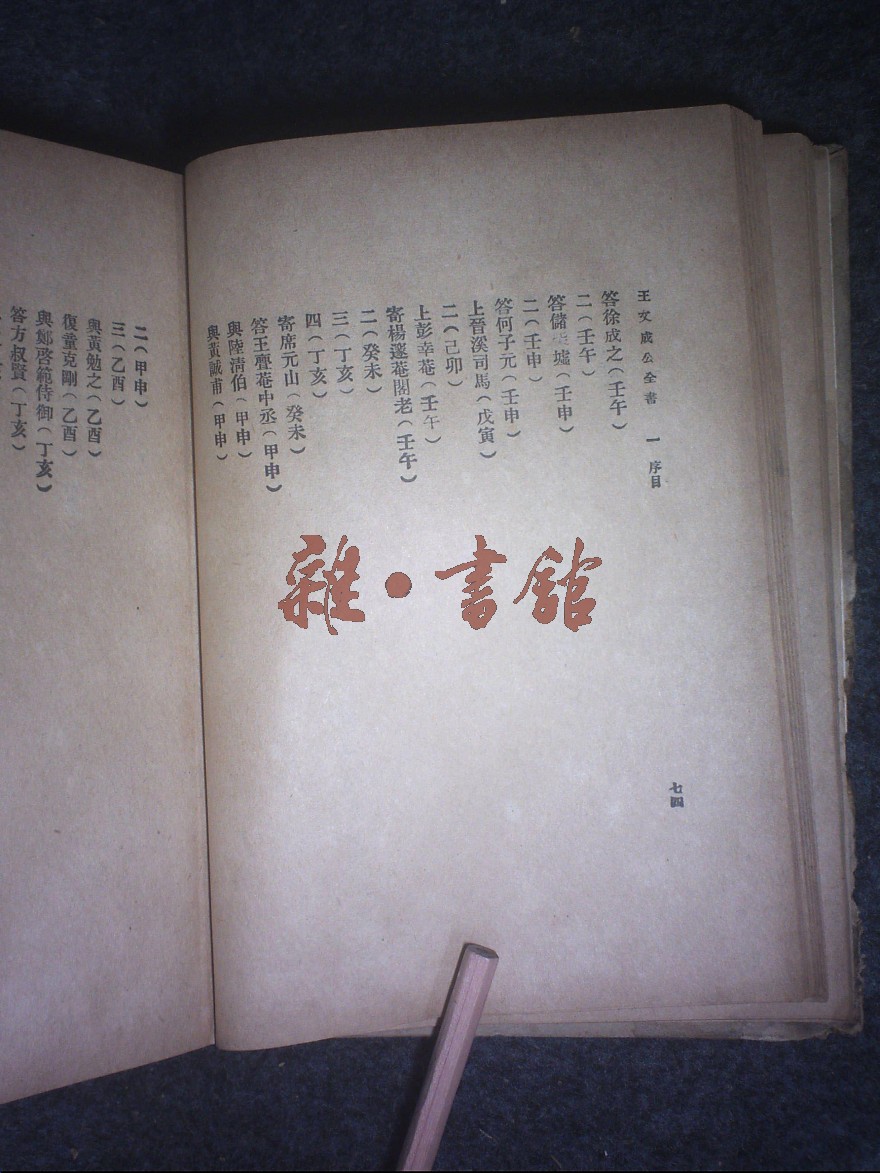 王文成公全書 一 序目
答徐成之(壬午)
二(壬午)
答儲柴墟(壬申)
二(壬申)
答何子元(壬申)
上晉溪司馬(戊寅)
二(己卯)
上彭幸菴(壬午)
寄楊邃菴閣老(壬午)
二(癸未)
三(丁亥)
四(丁亥)
寄席元山(癸未)
答王亹菴中丞(甲申)
與陸清伯(甲申)
與黃誠甫(甲申)
七四
二(甲申)
三(乙酉)
與黃勉之(乙酉)
復童克剛(乙酉)
與鄭啓範侍御(丁亥)
答方叔賢(丁亥)
雜·書館